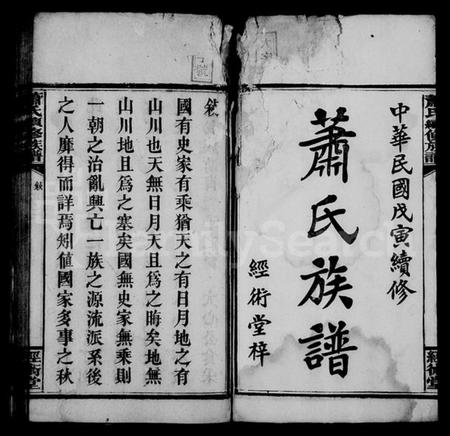 中華民國戊寅續修
蕭氏族譜
經術堂梓
蕭氏續修族譜
經術堂
敘
國有史家有乘猶天之有日月地之有
山川也天無日月天且為之晦矣地無
山川地且為之塞矣國無史家無乘則
一朝之治亂興亡一族之源流派系後
之人靡得而詳焉矧值國家多事之秋
蕭氏續修族譜
敘
經術堂